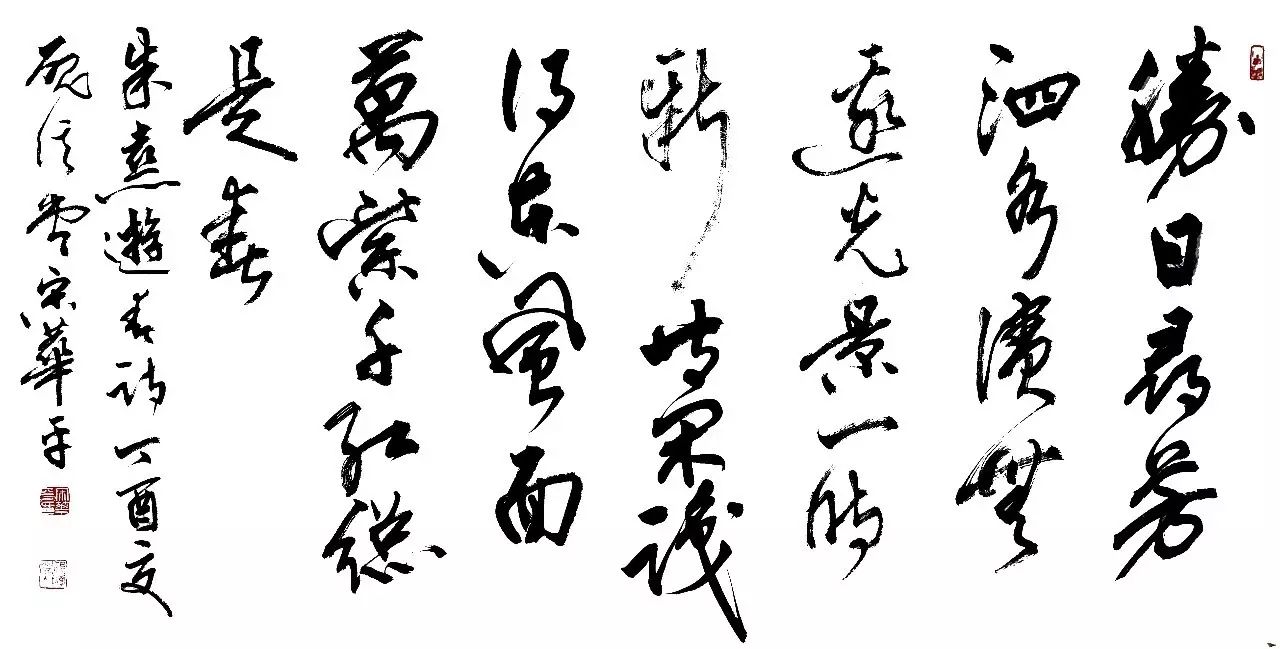 勝日尋芳
泗水濱無
邊光景一時
新等閑識
得東風面
萬紫千紅總
是春
朱熹遊春詩丁酉夏
宋華平